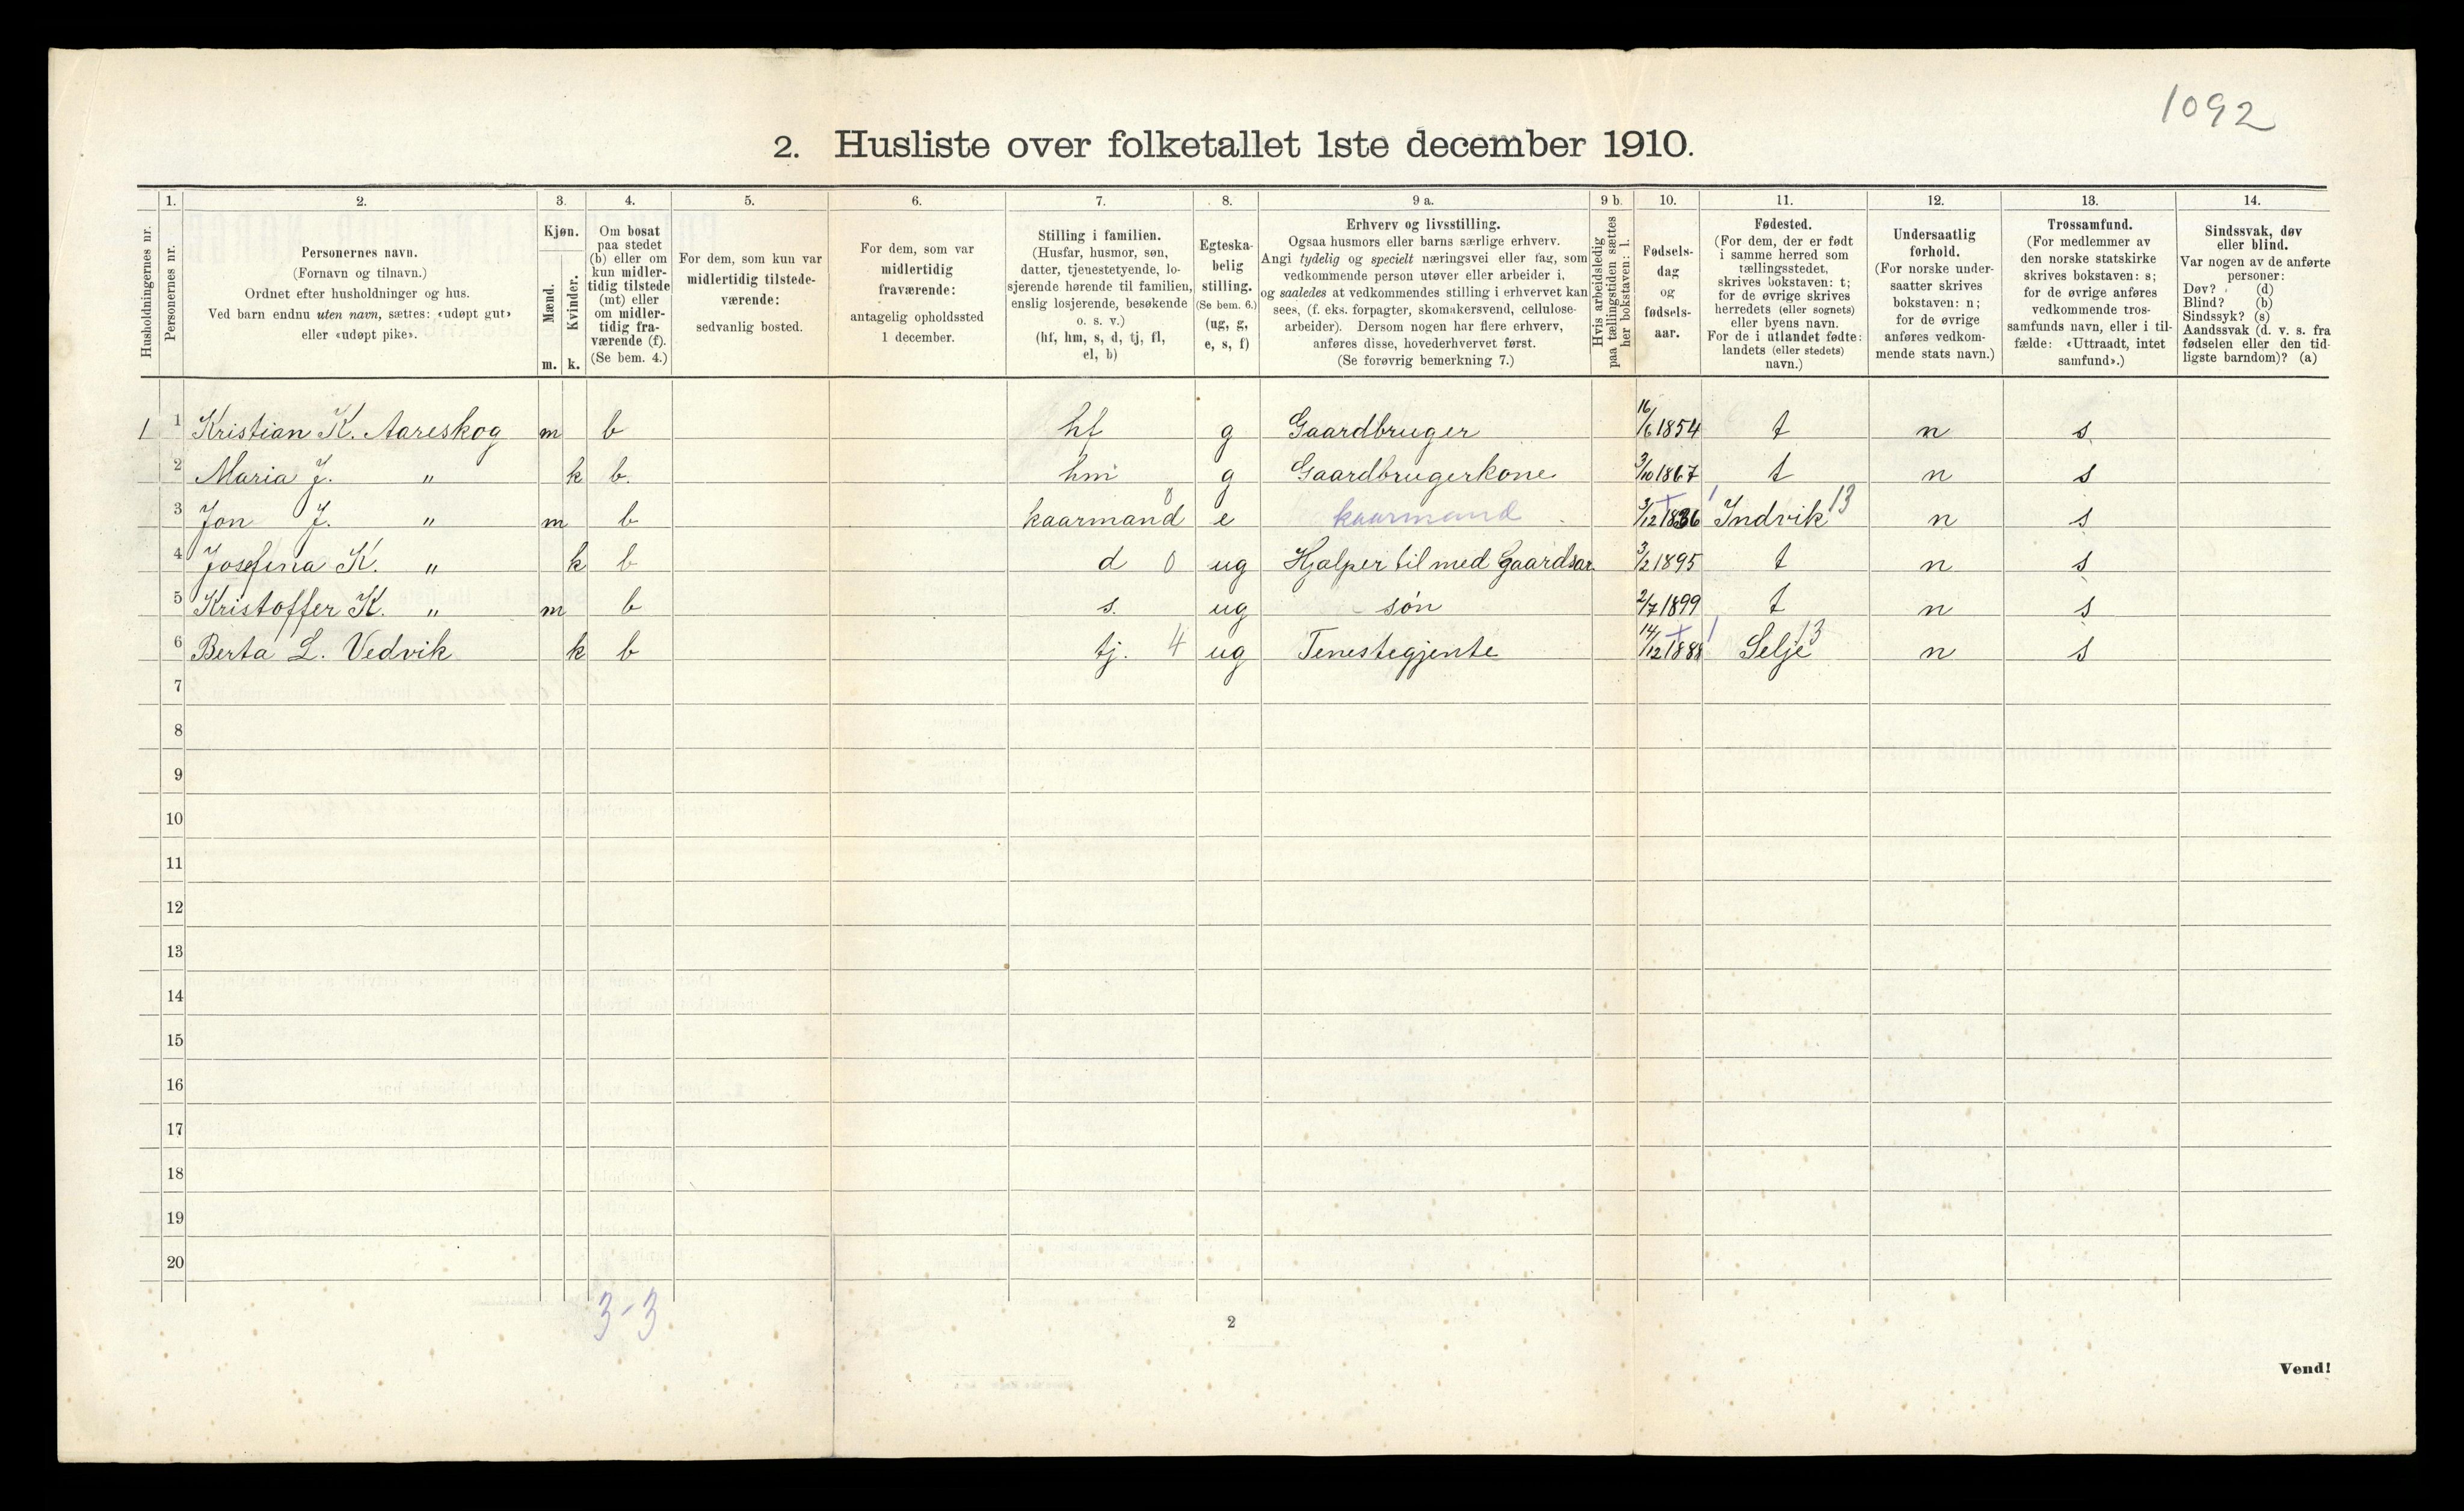 1092
2. Husliste over folketallet 1ste december 1910.
Husholdningernes nr.
1.
Personernes nr.
2.
Personernes navn.
(Fornavn og tilnavn.)
Ordnet efter husholdninger og hus.
Ved barn endnu uten navn, sættes: «udøpt gut»
eller «udøpt pike».
3.
Kjøn.
Mænd.
Kvinder.
m. k.
4.
Om bosat
paa stedet
(b) eller om
kun midler-
tidig tilstede
(mt) eller
om midler-
tidig fra-
værende (f).
(Se bem. 4.)
5.
For dem, som kun var
midlertidig tilstede-
værende:
sedvanlig bosted.
6.
For dem, som var
midlertidig
fraværende:
antagelig opholdssted
1 december.
7.
Stilling i familien.
(Husfar, husmor, søn,
datter, tjenestetyende, lo-
sjerende hørende til familien,
enslig losjerende, besøkende
o. s. v.)
(hf, hm, s, d, tj, fl,
el, b)
8.
Egteska-
belig
stilling.
(Se bem. 6.)
(ug, g,
e, s, f)
9 a.
Erhverv og livsstilling.
Ogsaa husmors eller barns særlige erhverv.
Angi tydelig og specielt næringsvei eller fag, som
vedkommende person utøver eller arbeider i,
og saaledes at vedkommendes stilling i erhvervet kan
sees, (f. eks. forpagter, skomakersvend, cellulose-
arbeider). Dersom nogen har flere erhverv,
anføres disse, hovederhvervet først.
(Se forøvrig bemerkning 7.)
9 b.
Hvis arbeidsledig
paa tællingstiden sættes
her bokstaven: l.
10.
Fødsels-
dag
og
fødsels-
aar.
11.
Fødested.
(For dem, der er født
i samme herred som
tællingsstedet,
skrives bokstaven: t;
for de øvrige skrives
herredets (eller sognets)
eller byens navn.
For de i utlandet fødte:
landets (eller stedets)
navn.)
12.
Undersaatlig
forhold.
(For norske under-
saatter skrives
bokstaven: n;
for de øvrige
anføres vedkom-
mende stats navn.)
13.
Trossamfund.
(For medlemmer av
den norske statskirke
skrives bokstaven: s;
for de øvrige anføres
vedkommende tros-
samfunds navn, eller i til-
fælde: «Uttraadt, intet
samfund».)
14.
Sindssvak, døv
eller blind.
Var nogen av de anførte
personer:
Døv? (d)
Blind? (b)
Sindssyk? (s)
Aandssvak (d. v. s. fra
fødselen eller den tid-
ligste barndom)? (a)
1 1 Kristian K. Aareskog m b hf g Gaardbruger 16/6 1854 t n s
2 Maria J. " k b. hm g Gaardbrugerkone 3/10 1867 t n s
3 Jon J. " m b kaarmand 0 e kaarmand 3/12 1836 Indvik 13 n s
4 Josefina K. " k b d 0 ug Hjælper til med Gaardsar. 3/2 1895 t n s
5 Kristoffer K. " m b s. ug søn 2/7 1899 t n s
6 Berta L. Vedvik k b tj. 4 ug Tenestegjente 14/12 1888 Selje 13 n s
7
8
9
10
11
12
13
14
15
16
17
18
19
20
3-3
2
Vend!